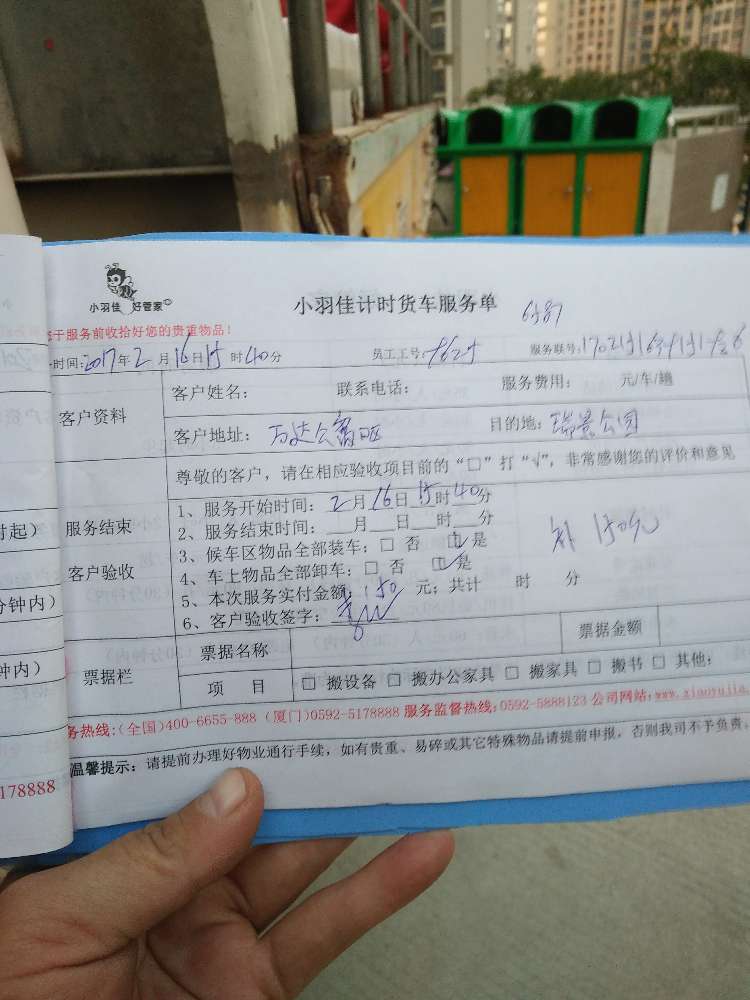 小羽佳 好管家
小羽佳计时货车服务单
于服务前收拾好您的贵重物品!
时间:2017年2月16日15时40分 员工工号: 服务联号:
客户资料
客户姓名: 联系电话: 服务费用: 元/车/趟
客户地址:万达公寓A区 目的地:瑞景公园
尊敬的客户,请在相应验收项目前的“□”打“√”,非常感谢您的评价和意见
服务结束
客户验收
1、服务开始时间:2月16日15时40分
2、服务结束时间:__月__日__时__分
3、候车区物品全部装车:□ 否 □ 是
4、车上物品全部卸车:□ 否 □ 是
5、本次服务实付金额:150元;共计 时 分
6、客户验收签字:
补 150元
票据栏
票据名称 票据金额
项 目 □ 搬设备 □ 搬办公家具 □ 搬家具 □ 搬书 □ 其他:
务热线:(全国)400-6655-888 (厦门)0592-5178888 服务监督热线:0592-5888123 公司网站:www.xiaoyujia.
温馨提示:请提前办理好物业通行手续,如有贵重、易碎或其它特殊物品请提前申报,否则我司不予负责。
时起)
分钟内)
钟内)
178888